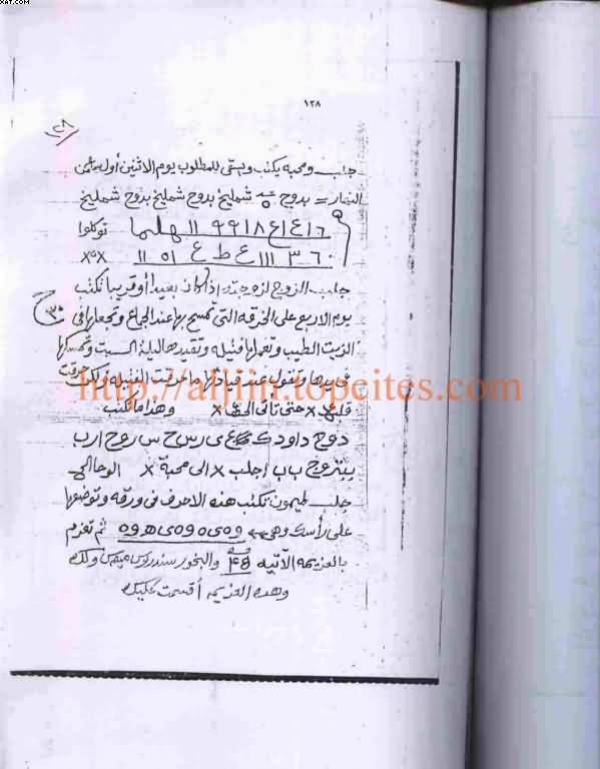 XAT.COM
١٢٨
٢٨
جلب ومحبه يكتب ويسقى للمطلوب يوم الاثنين أول
النهار = بدوح شمليخ بدوح شمليخ بدوح شمليخ
١٦ع٤١٨١٩٩ ١١ يهليما توكلوا
٣٦٠ ١١١ ع ط ع ١٥ ١١ X٥X
جلب الزوج لزوجته إذا كان بعيدا أو قريبا تكتب
يوم الاربع على الخرقه التى تمسح بها عند الجماع وتجعلها فى
٣٠
الزيت الطيب وتعملها فتيله وتقيدها ليلة السبت وتمسكها
فى يدها وتقول عند قيادتها ما حرقت الفتيله ولكن حرقت
قلب X حتى تاتى الى X وهذا ما تكتب
دوح داود ع ى رس ح س روح ارب
باب اجلب X الى محبة X الوحا
جلب طيمون تكتب هذه الاحرف فى ورقه وتوضعها
على رأسك وهى وه ى ه و ه ى ه و ه ثم تعزم
بالعزيمه الآتيه ٤٥ والبخور سندروس
وهذه العزيمه أقسمت عليك
http://aljjin.topcites.com